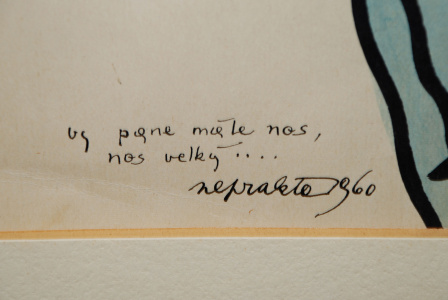 vy pane máte nos,
nos velký ....
neprakta 1960